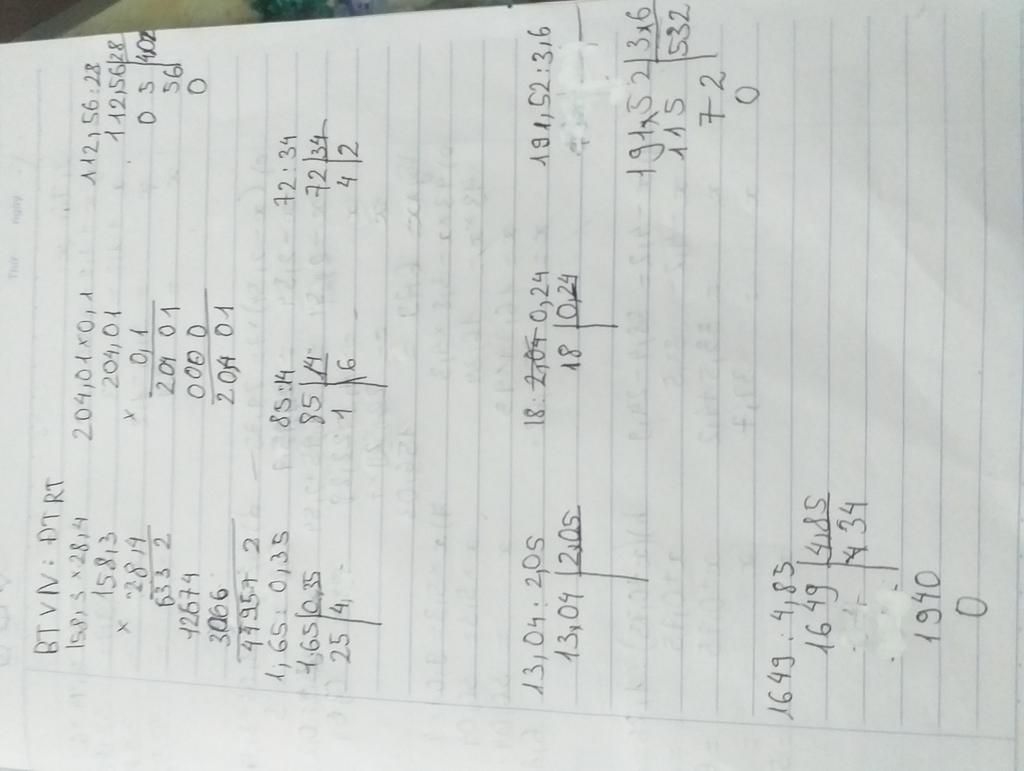 BTVN: ĐTRT
158,3 × 28,4
158,3
×
28,4
633 2
12674
3066
44957 2
204,01×0,1
204,01
×
0,1
204 01
000 0
20,4 01
112,56:28
112,56 28
0 5 4,02
56
0
1,65: 0,35
1,65 0,35
25 4,
85:14
85 14
1 6
72:34
72 34
4 2
13,04: 2,05
13,04 2,05
18: 2,04 0,24
18 0,24
191,52:3,6
191,52 3,6
115 532
7 2
0
1649: 4,85
1649 4,85
4 34
1940
0